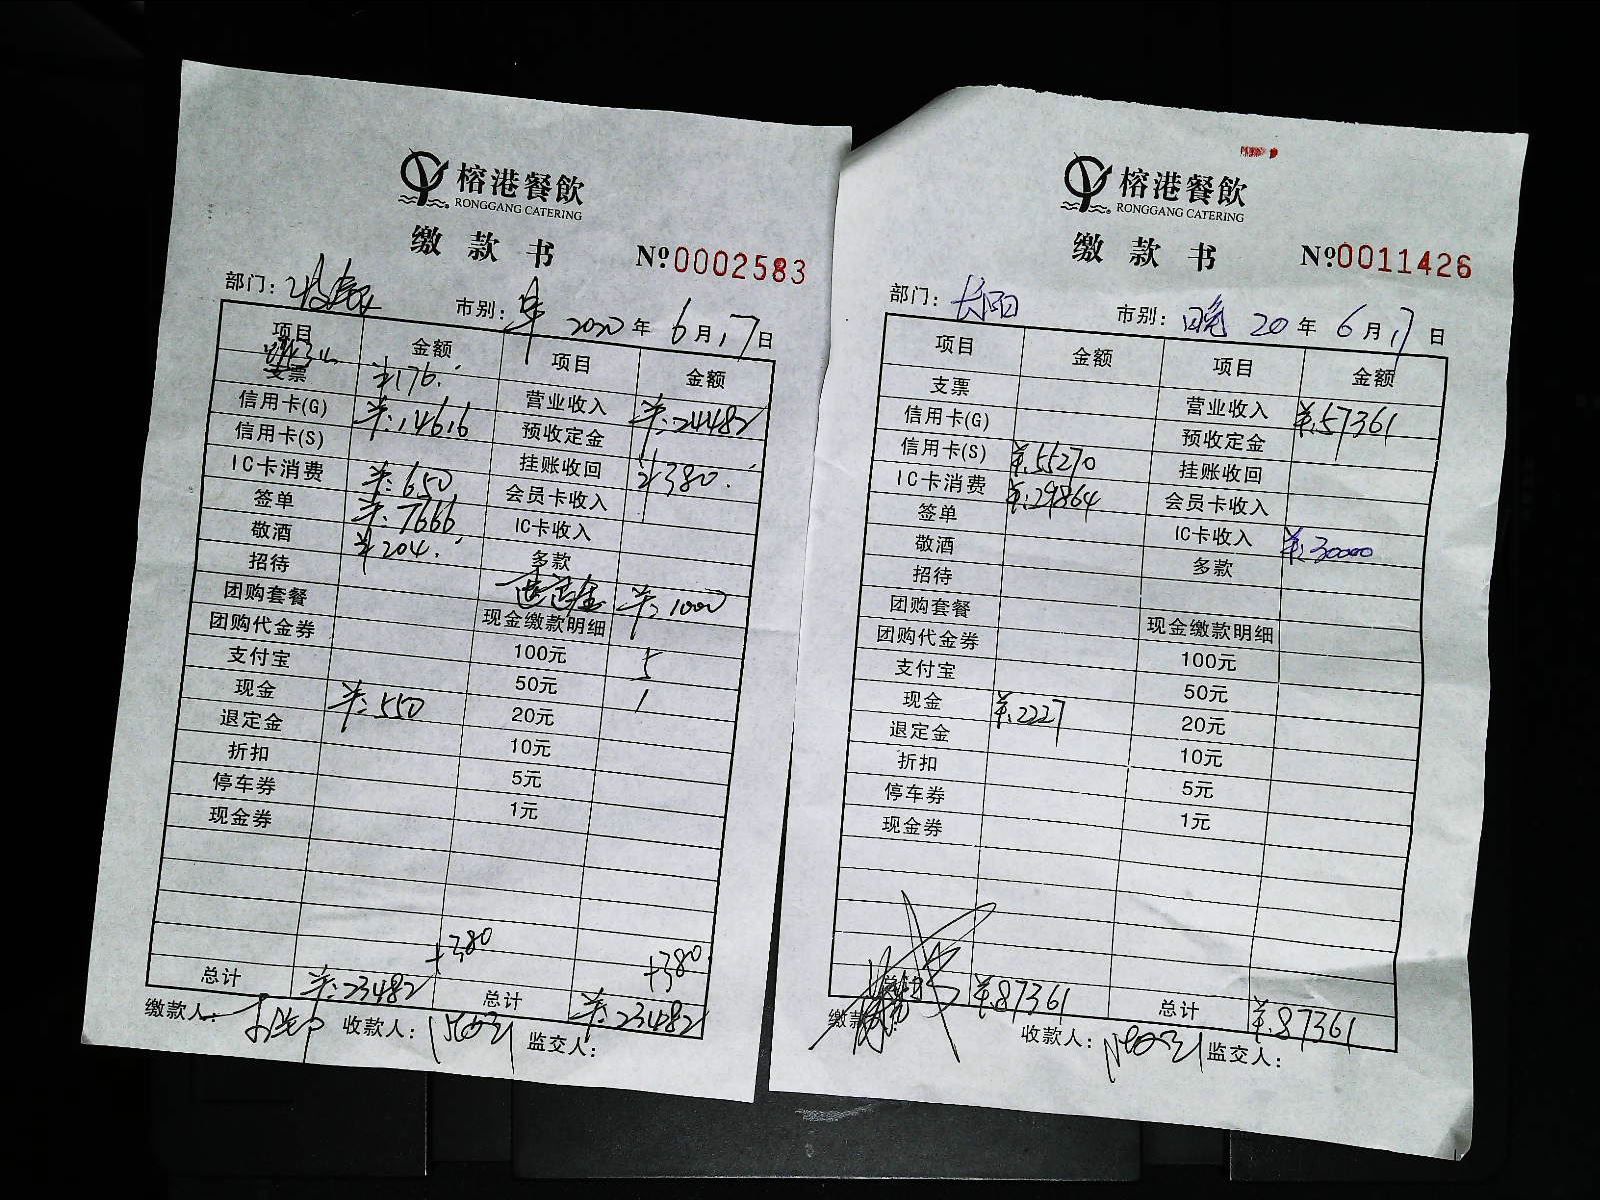 榕港餐飲
RONGGANG CATERING
缴款书 №0002583
部门: 市别: 早 2020年6月17日
项目 金额 项目 金额
支票 ¥176. 营业收入 ¥:24482
信用卡(G) ¥:14616 预收定金
信用卡(S) 挂账收回 ¥380.
IC卡消费 ¥:650 会员卡收入
签单 ¥:7666 IC卡收入
敬酒 ¥204. 多款
招待 ¥:1000
团购套餐 现金缴款明细
团购代金券 100元 5
支付宝 50元 1
现金 ¥:550 20元
退定金 10元
折扣 5元
停车券 1元
现金券
+380 +380
总计 ¥:23482 总计 ¥:23482
缴款人: 收款人: 监交人:
榕港餐飲
RONGGANG CATERING
缴款书 №0011426
部门: 长阳 市别: 晚 20年6月17日
项目 金额 项目 金额
支票 营业收入 ¥:57361
信用卡(G) 预收定金
信用卡(S) ¥:55270 挂账收回
IC卡消费 ¥:29864 会员卡收入
签单 IC卡收入 ¥:30000
敬酒 多款
招待
团购套餐 现金缴款明细
团购代金券 100元
支付宝 50元
现金 ¥:2227 20元
退定金 10元
折扣 5元
停车券 1元
现金券
总计 ¥:87361 总计 ¥:87361
缴款 收款人: 监交人: